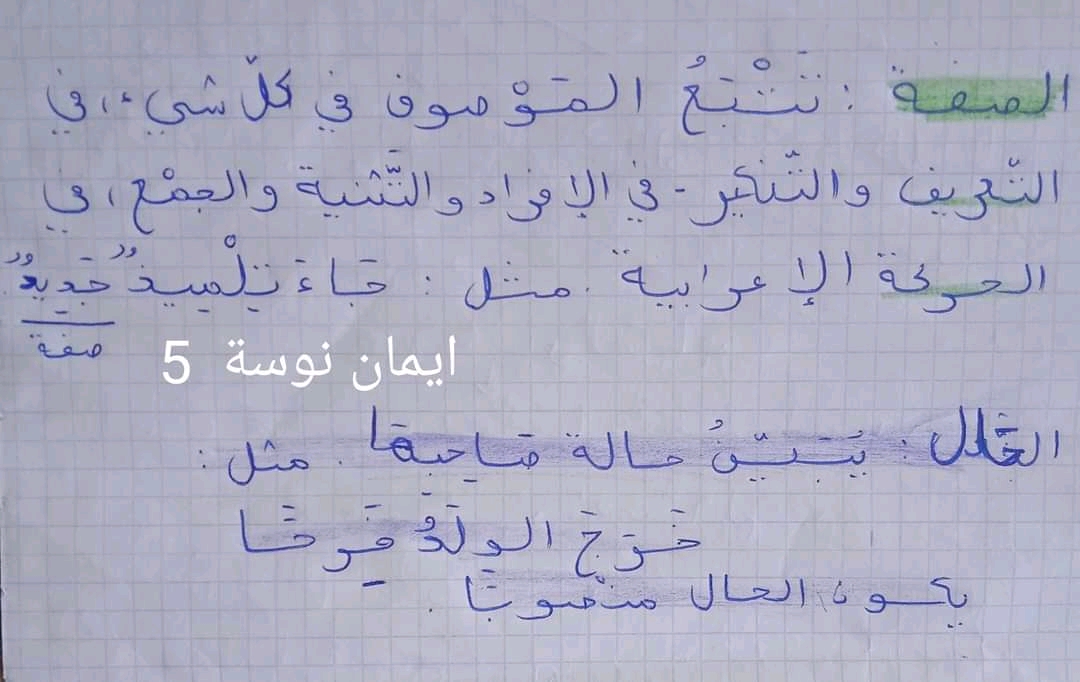 الصفة : تَتْبَعُ المَوْصوف في كلّ شيء، في
التّعريف والتّنكير - في الإفراد والتَّثنية والجمْع، في
الحركة الإعرابية. مثل : جَاءَ تِلْميذٌ جَديدٌ
صفة
ايمان نوسة 5
الحَال : يُبَيّنُ حالة صَاحِبها. مثل :
خَرَجَ الوَلَدُ فَرِحًا
يكون الحال منْصوبًا.